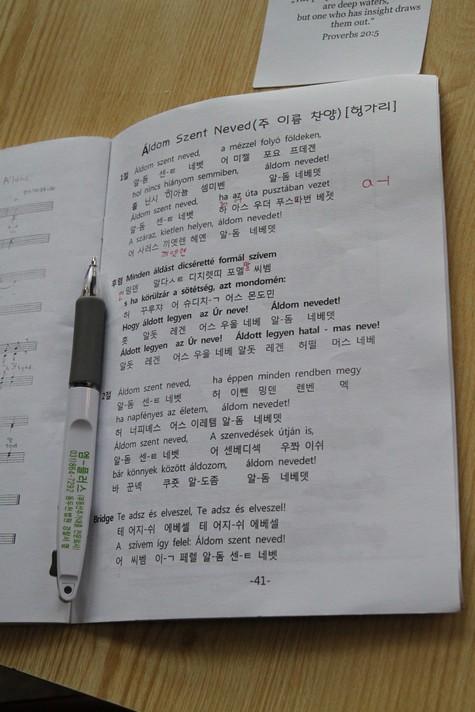 are deep waters,
but one who has insight draws
them out."
Proverbs 20:5
Áldom Szent Neved(주 이름 찬양)[헝가리]
1절 Áldom szent neved, a mézzel folyó földeken,
알-돔 센-ㅌ 네벳 어 미젤 포요 프데겐
hol nincs hiányom semmiben, áldom nevedet!
홀 닌시 히아뇸 셈미벤 알-돔 네베뎃
Áldom szent neved, ha az úta pusztában vezet
알-돔 센-ㅌ 네벳 하 아스 우터 푸스따번 베젯
A száraz, kietlen helyen, áldom nevedet!
어 사러스 끼엣렌 헤옌 알-돔 네베뎃
a ㅓ
후렴 Minden áldást dicséretté formál szívem
밍덴 알다스ㅌ 디치렛띠 포엘 씨벰
s ha körülzár a sötétség, azt mondomén:
허 꾸루쟈 어 슈디치-ㄱ 어스 몬도민
Hogy áldott legyen az Úr neve! Áldom nevedet!
홋 알돗 레겐 어스 우울 네베 알-돔 네베뎃
Áldott legyen az Úr neve! Áldott legyen hatal - mas neve!
알돗 레겐 어스 우울 네베 알돗 레겐 허떨 머스 네베
2절 Áldom szent neved, ha éppen minden rendben megy
알-돔 센-ㅌ 네벳 허 이뻰 밍덴 렌벤 멕
ha napfényes az életem, áldom nevedet!
허 너피녜스 어스 이레템 알-돔 네베뎃
Áldom szent neved, A szenvedések útján is,
알-돔 센-ㅌ 네벳 어 센베디섹 우쫘 이쉬
bár könnyek között áldozom, áldom nevedet!
바 꾼녝 쿠죳 알-도좀 알-돔 네베뎃
Bridge Te adsz és elveszel, Te adsz és elveszel!
테 어지-쉬 에베셀 테 어지-쉬 에베셀
A szívem így felel: Áldom szent neved!
어 씨벰 이-ㄱ 페렐 알-돔 센-ㅌ 네벳
-41-
엠-플러스